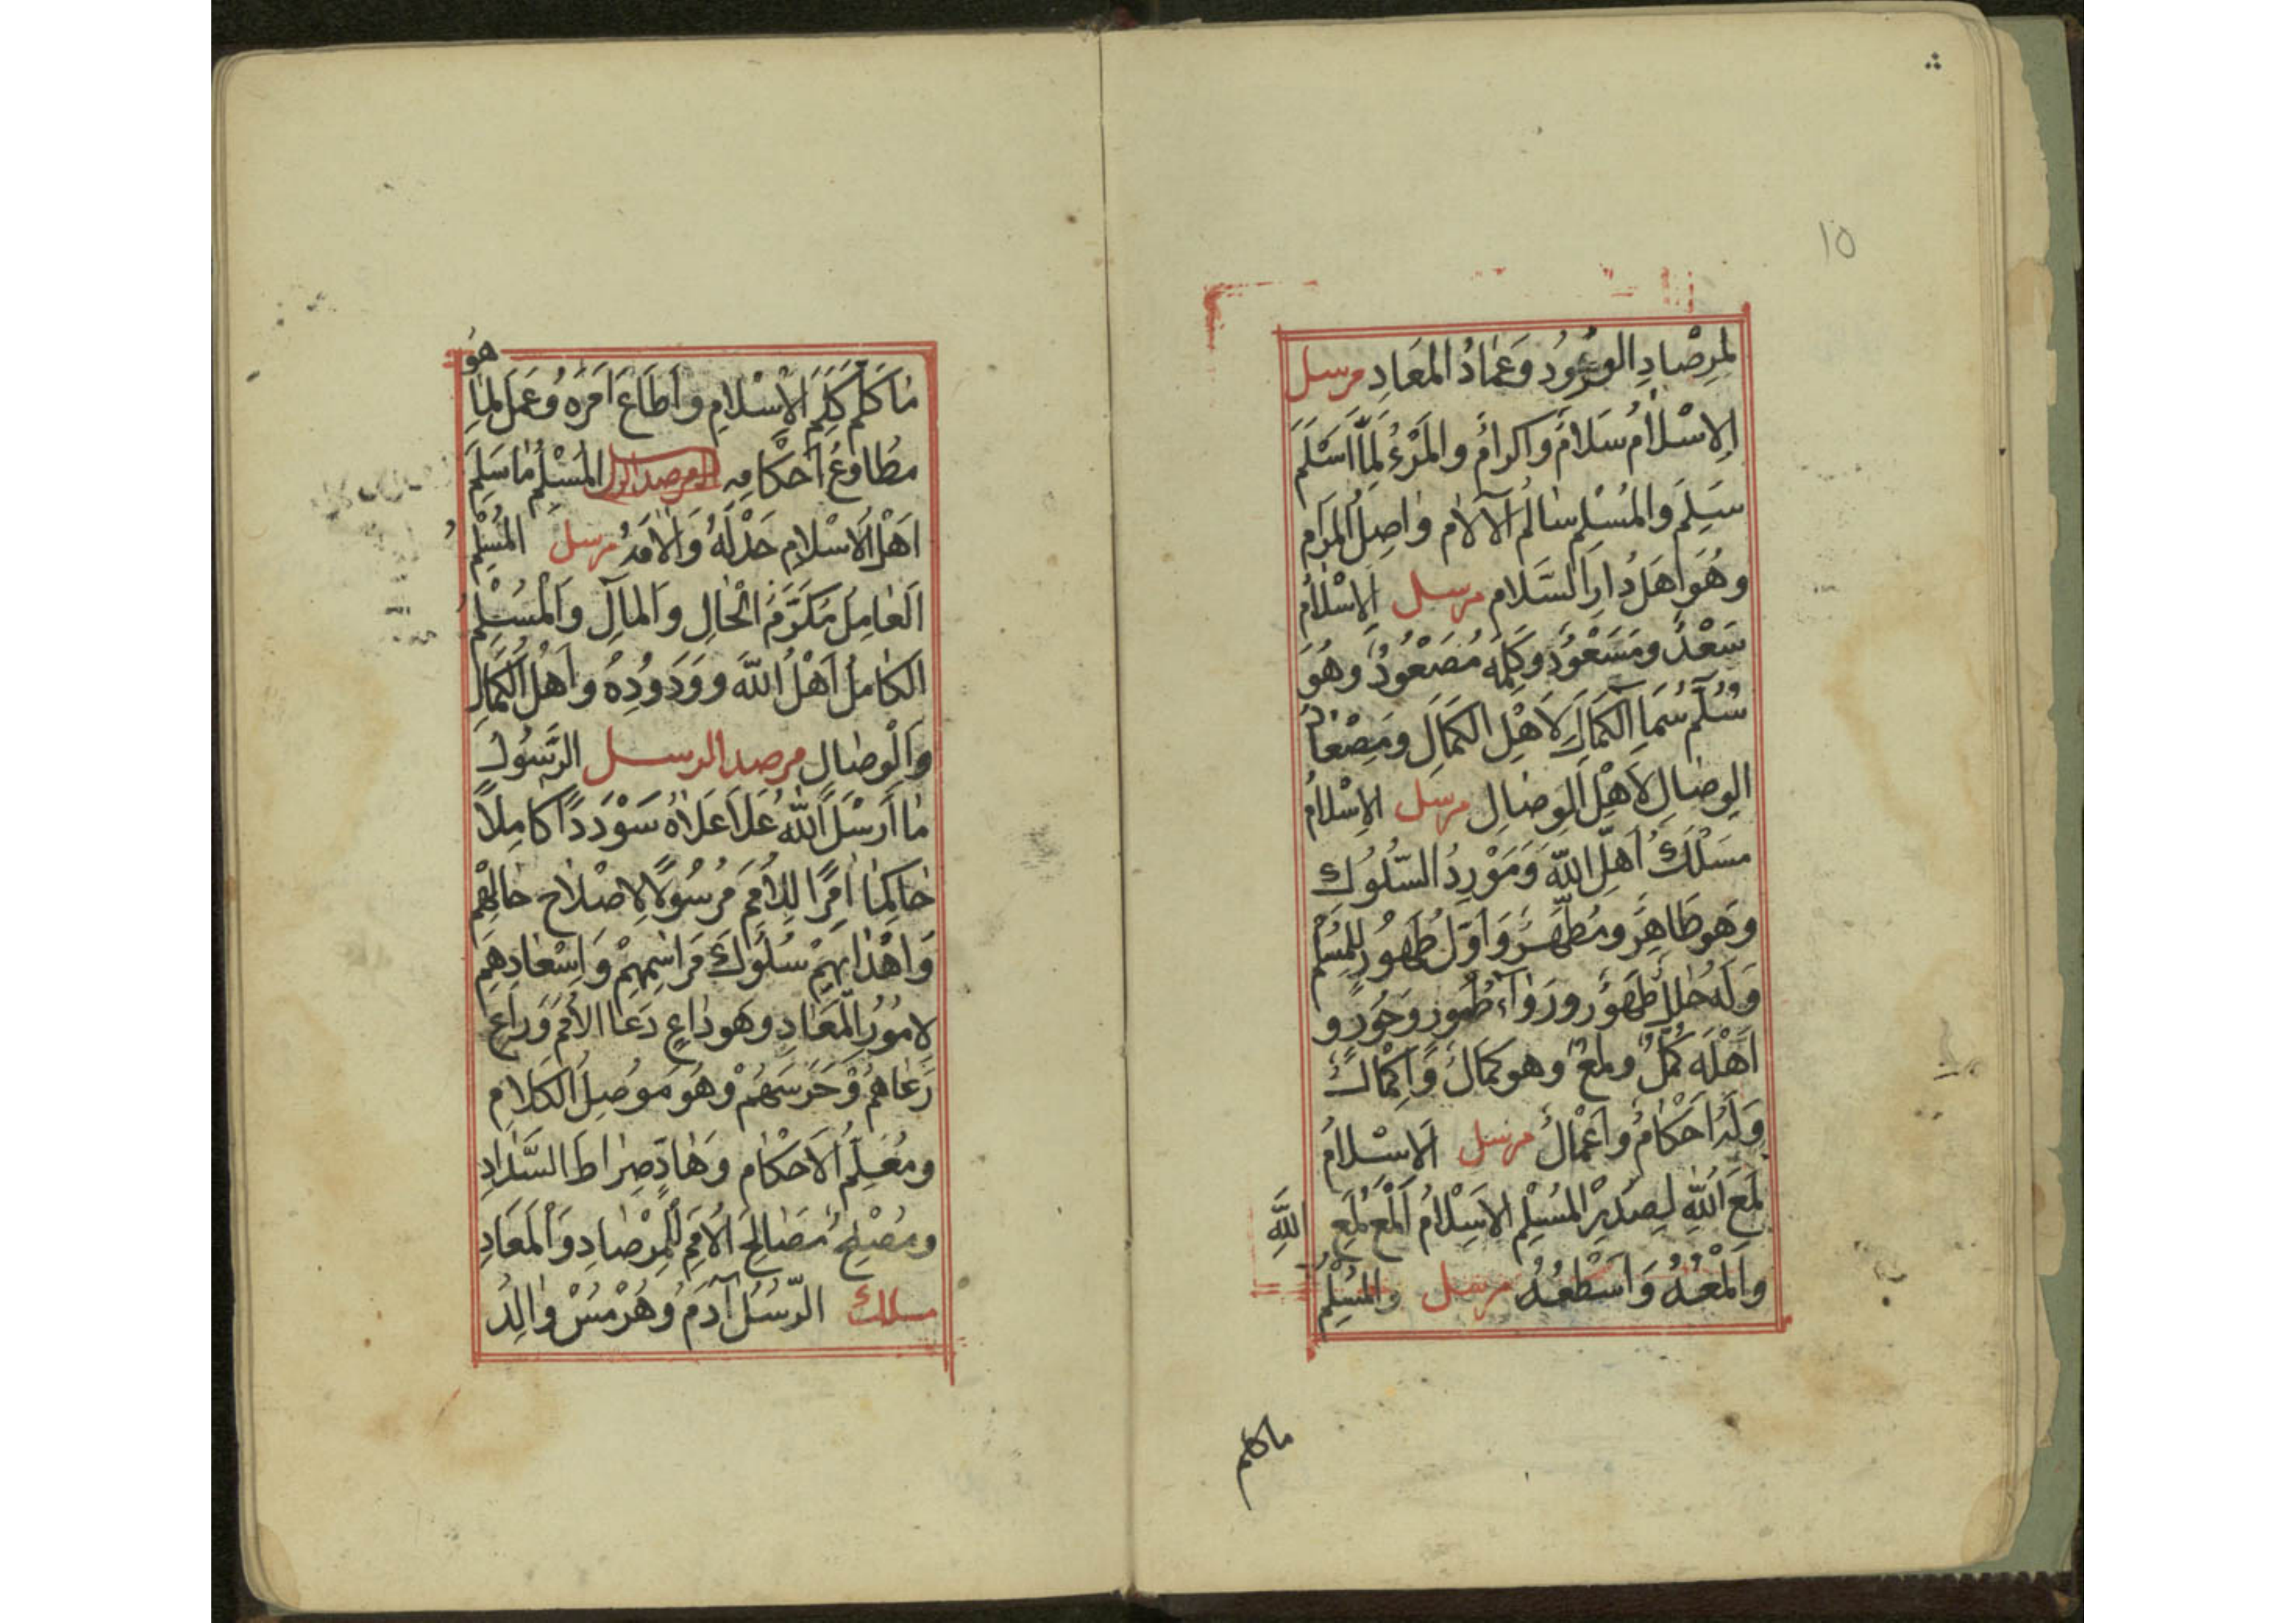 ١٥
لمرصاد الورود وعماد المعاد مرسل
الاسلام سلام واكرام والمرء لما اسلم
سلم والمسلم سالم الآلام واصل المرام
وهو اهل دار السلام مرسل الاسلام
سعد ومسعود وكلمه مصعود وهو
سلم سماء الكمال لاهل الكمال ومصعاد
الوصال لاهل الوصال مرسل الاسلام
مسلك اهل الله ومورد السلوك
وهو طاهر ومطهر واول طهور للمسلم
وله حلل طهور ورواء طهور وحور و
اهله كمل ولمع وهو كمال واكمال
وله احكام واعمال مرسل الاسلام
لمع الله لصدر المسلم الاسلام المع لمع الله
والمعه واسطعه مرسل والمسلم
ماكلم
ماكلم كلم الاسلام واطاع امره وعمل لما هو
مطاوع احكامه المسلم ما سلم
اهل الاسلام حدله والامه مرسل المسلم
العامل مكرم الحال والمآل والمسلم
الكامل اهل الله وودوده واهل الكمال
والوصال مرصد الرسل الرسول
ما ارسل الله علا علاه سوددا كاملا
حاكما امرا للامم مرسولا لاصلاح حالهم
واهدائهم سلوك مراسمهم واسعادهم
لامور المعاد وهو داع دعا الامم وراع
رعاهم وحرسهم وهو موصل الكلام
ومعلم الاحكام وهاد صراط السداد
ومصلح مصالح الامم للمرصاد والمعاد
مسلك الرسل آدم وهرمس والد